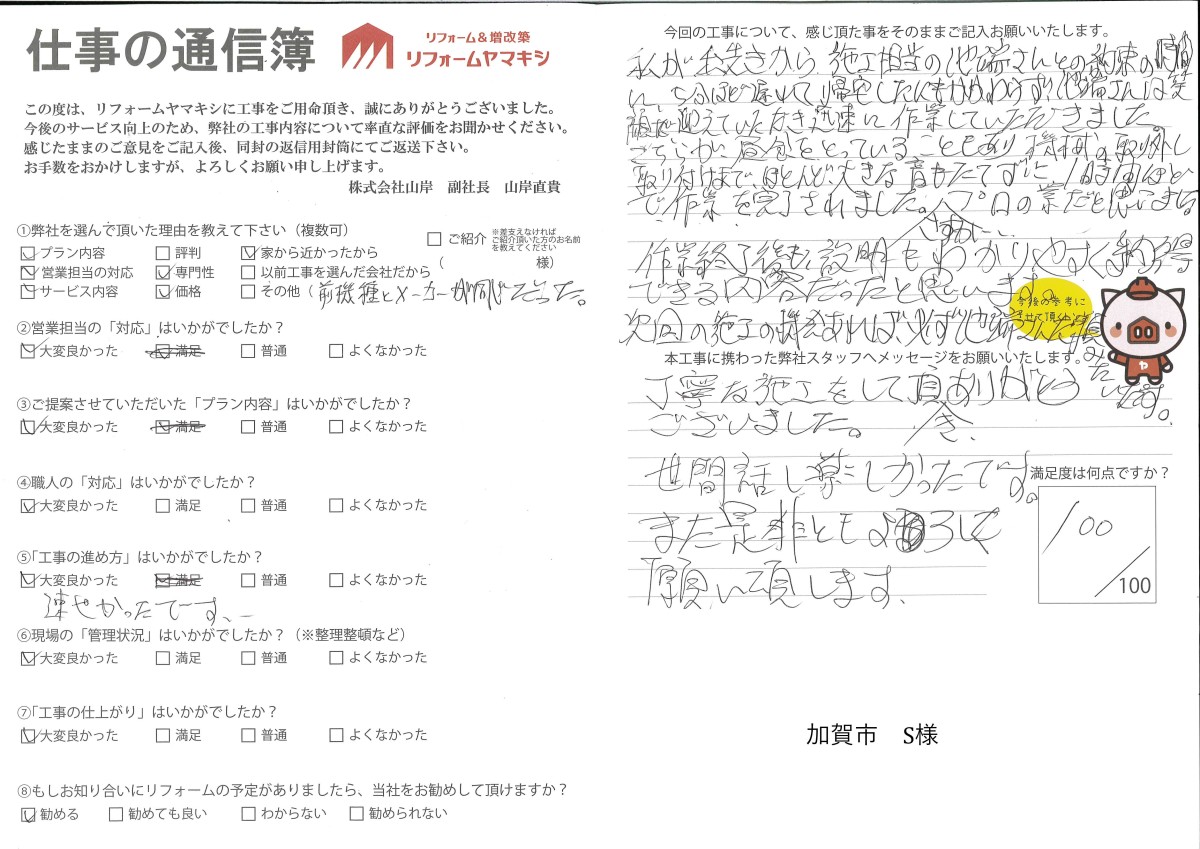 仕事の通信簿
リフォーム&増改築
リフォームヤマキシ
この度は、リフォームヤマキシに工事をご用命頂き、誠にありがとうございました。
今後のサービス向上のため、弊社の工事内容について率直な評価をお聞かせください。
感じたままのご意見をご記入後、同封の返信用封筒にてご返送下さい。
お手数をおかけしますが、よろしくお願い申し上げます。
株式会社山岸 副社長 山岸直貴
①弊社を選んで頂いた理由を教えて下さい（複数可）
プラン内容 評判 家から近かったから
ご紹介 ※差支えなければ
ご紹介頂いた方のお名前
を教えてください
営業担当の対応 専門性 以前工事を選んだ会社だから ( 様)
サービス内容 価格 その他（前機種とメーカーが同じだった。
②営業担当の「対応」はいかがでしたか？
大変良かった 満足 普通 よくなかった
③ご提案させていただいた「プラン内容」はいかがでしたか？
大変良かった 満足 普通 よくなかった
④職人の「対応」はいかがでしたか？
大変良かった 満足 普通 よくなかった
⑤「工事の進め方」はいかがでしたか？
大変良かった 満足 普通 よくなかった
速せかったてす、
⑥現場の「管理状況」はいかがでしたか？（※整理整頓など）
大変良かった 満足 普通 よくなかった
⑦「工事の仕上がり」はいかがでしたか？
大変良かった 満足 普通 よくなかった
⑧もしお知り合いにリフォームの予定がありましたら、当社をお勧めして頂けますか？
勧める 勧めても良い わからない 勧められない
今回の工事について、感じ頂た事をそのままご記入お願いいたします。
私が出先きから、施工担当の池端さんとの約束の時間
に、5分ほど遅れて帰宅したにもかかわらず、池端さんは笑
顔で迎えていただき迅速に作業していただきました
こちらが、昼食をとっていることもあり機械の取り外し
取り付けまで、ほとんど、大きな音もたてずに、1時間ほど
で、作業を完了されました。プロの業だと思いまる
すがに
作業終了後も、説明もわかりやすく納得
できる内容だったと思います。
次回の施工の機会あれば、必ず池端さんに頼
みたいです。
今後の参考に
させて頂く
ヤ
本工事に携わった弊社スタッフへメッセージをお願いいたします。
丁寧な施工をして頂ありがとう
き、
ございました。
世間話し楽しかったてす。
また是非ともよろしく
願い頂します、
満足度は何点ですか？
100
/100
加賀市 S様